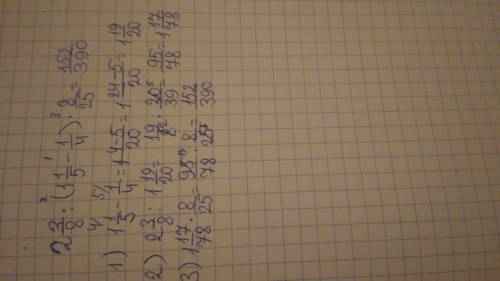 2 3/8 :² (1 1/5 -¹ 1/4) ·³ 8/25 = 152/390
1) 1 ⁴⁄1/5 - ⁵⁄1/4 = 1 4-5/20 = 1 24-5/20 = 1 19/20
2) 2 3/8 : 1 19/20 = 19/8² · 20⁵/39 = 95/78 = 1 17/78
3) 1 17/78 · 8/25 = 95¹⁹/78 · 8/25⁵ = 152/390